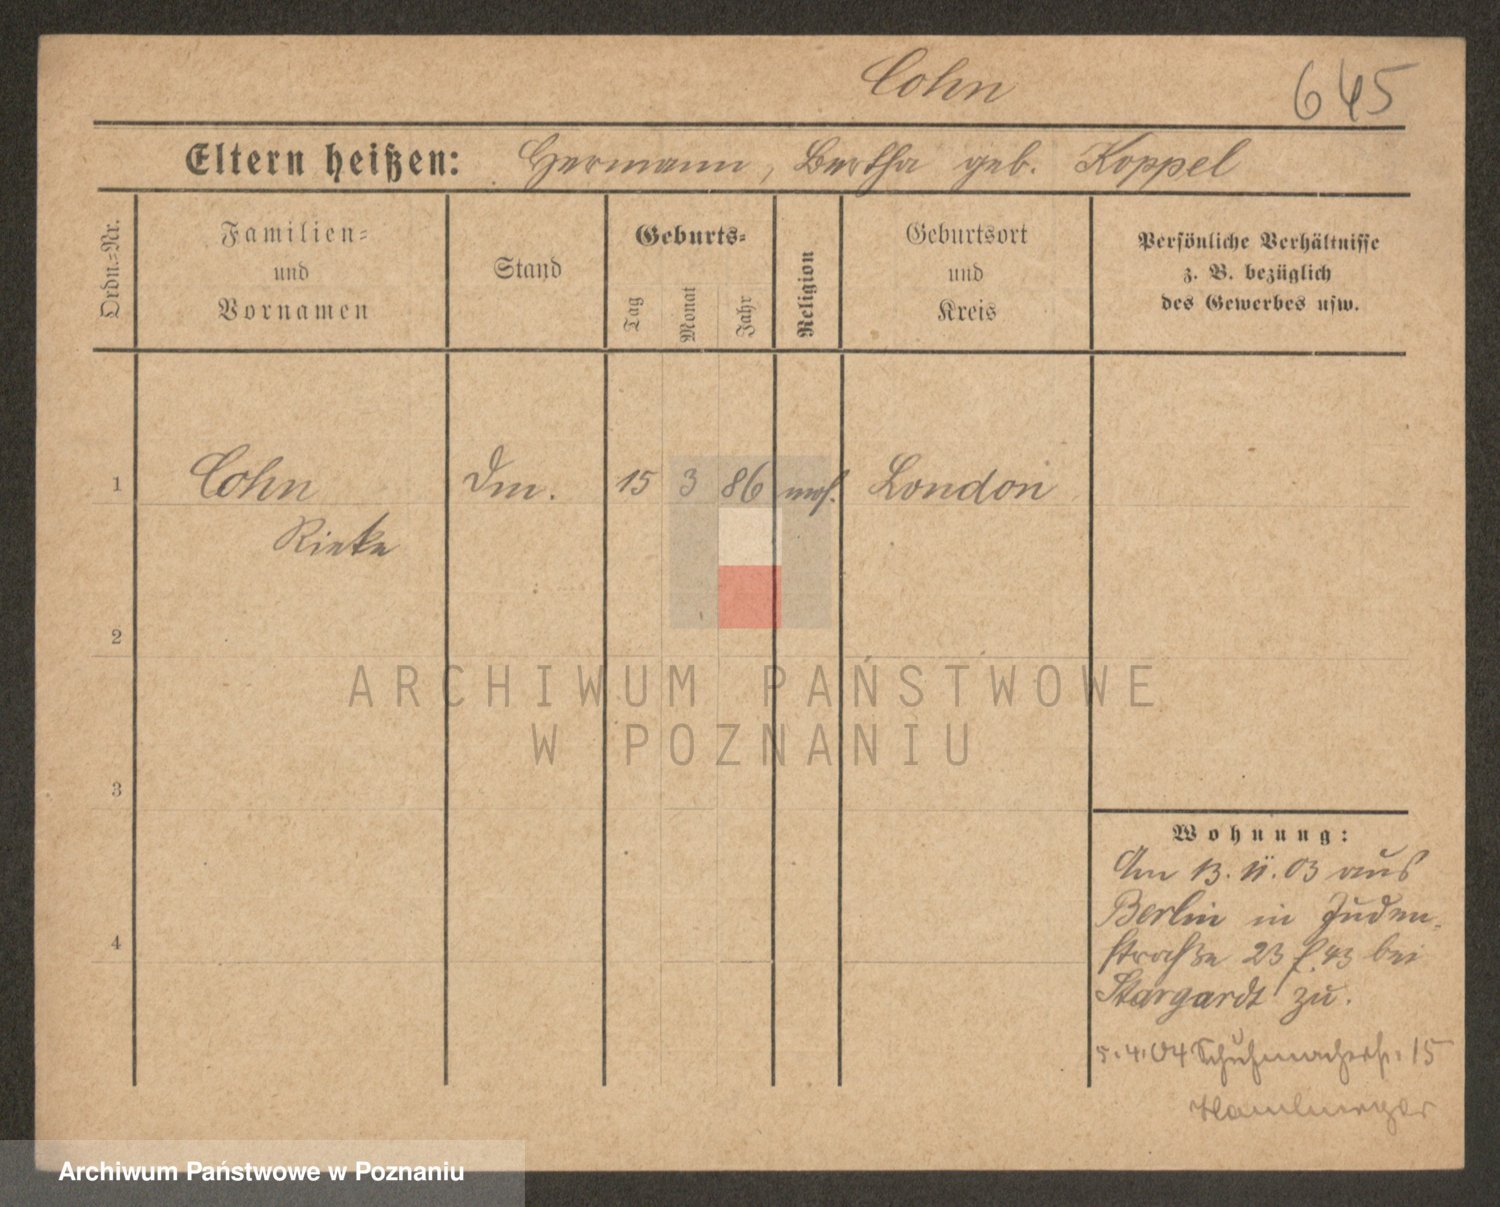 Cohn
645
Eltern heißen: Hermann, Bertha geb. Koppel
Ordn.=Nr.
Familien=
und
Vornamen
Stand
Geburts=
Tag
Monat
Jahr
Religion
Geburtsort
und
Kreis
Persönliche Verhältnisse
z. B. bezüglich
des Gewerbes usw.
1 Cohn Dm. 15 3 86 mos. London
Rieke
2
ARCHIWUM PAŃSTWOWE
W POZNANIU
3
Wohnung:
Am 13. 11. 03 aus
Berlin in Juden-
4
straße 23 f. 43 bei
Stargardt zu.
5.4.04 Schuhmacherstr. 15
Hamburger
Archiwum Państwowe w Poznaniu